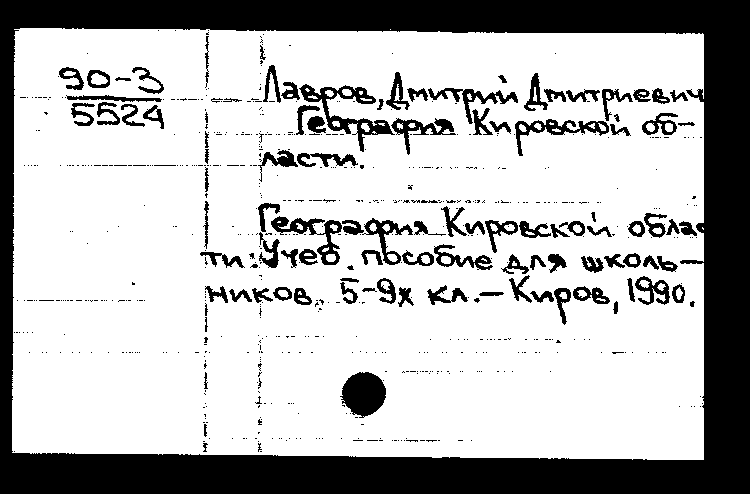 90-3
5524
Лавров, Дмитрий Дмитриевич
География Кировской об-
ласти.
География Кировской облас
ти: Учеб. пособие для школь-
ников 5-9х кл. - Киров, 1990.